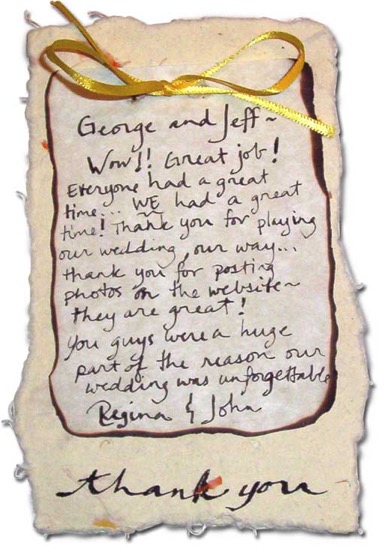 George and Jeff~
Wow!! Great job!
Everyone had a great
time... WE had a great
time! Thank you for playing
our wedding, our way...
thank you for posting
photos on the website~
they are great!
You guys were a huge
part of the reason our
wedding was unforgettable
Regina & John
thank you